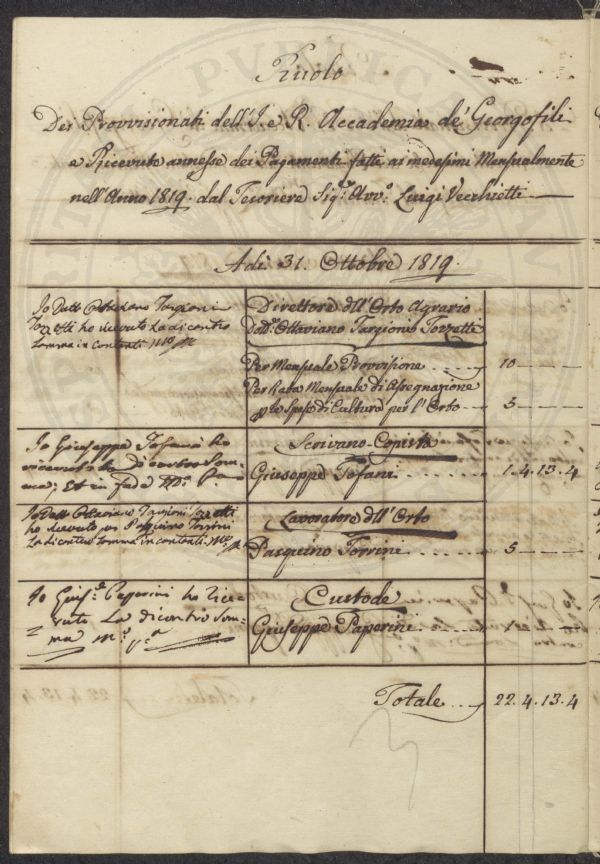 Ruolo
Dei Provvisionati dell'I. e R. Accademia de' Georgofili
e Ricevute annesse dei Pagamenti fatti ai medesimi Mensualmente
nell'Anno 1819. dal Tesoriere Sigr. Avvo. Luigi Vecchietti
Adi 31. Ottobre 1819.
Io Dott Ottaviano Targioni
Tozzetti ho ricevuto La di contro
somma in contanti Mo. pa.
Direttore dell'Orto Agrario
Dotr. Ottaviano Targioni Tozzetti
Per Mensuale Provvisione 10
Per Rata Mensuale di Assegnazione
per le Spese di Cultura per l'Orto 5
Io Giuseppe Tofani ho
ricevuto la di contro Som-
ma; Et in fede Mo. Pa.
Scrivano-Copista
Giuseppe Tofani 1. 4. 13. 4
Io Dott Ottaviano Targioni Tozzetti
ho ricevuto per Pasquino Torrini
La di contro somma in contanti Mo. pa.
Lavoratore dell'Orto
Pasquino Torrini 5
Io Giuse. Paperini ho Rice-
vuto La di contro Som-
ma Mo. pa.
Custode
Giuseppe Paperini 1
Totale 22. 4. 13. 4